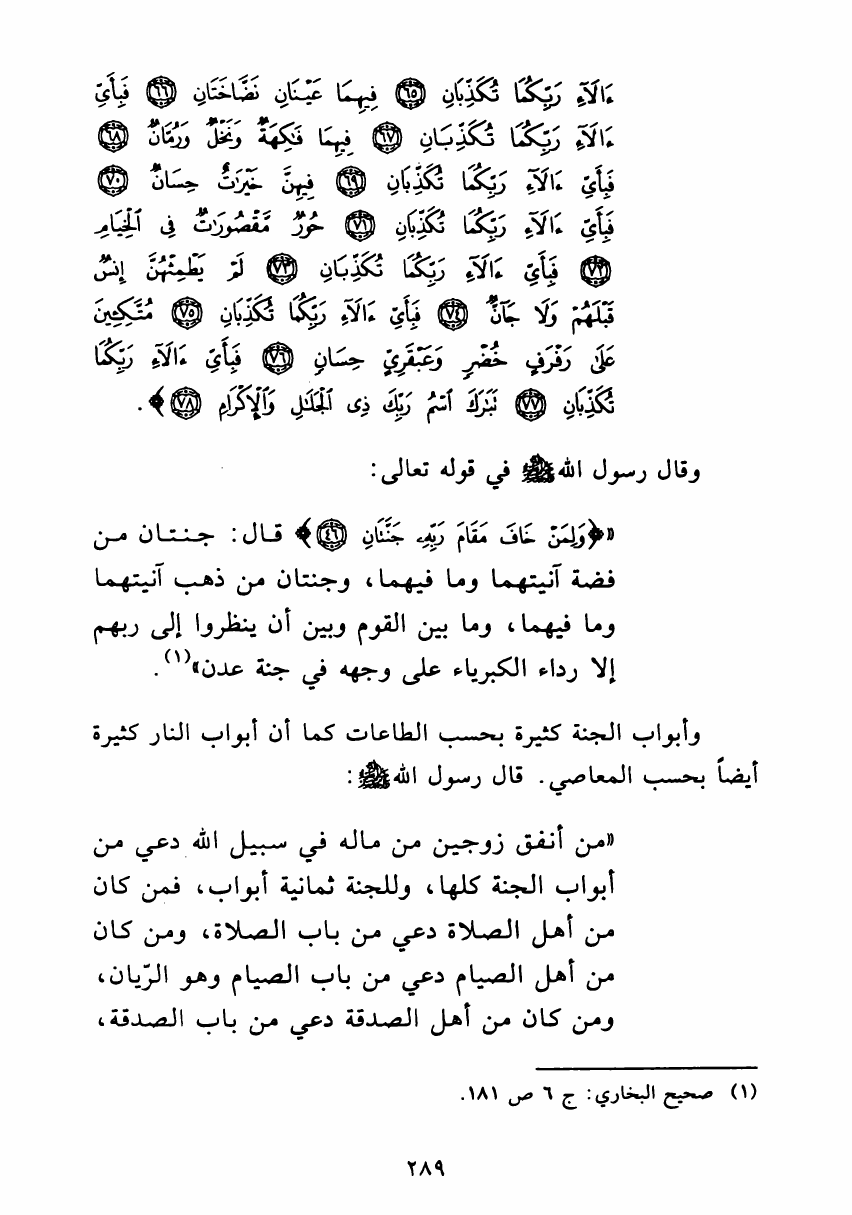 ءَالَآءِ رَبِّكُمَا تُكَذِّبَانِ ﴿٦٥﴾ فِيهِمَا عَيْنَانِ نَضَّاخَتَانِ ﴿٦٦﴾ فَبِأَيِّ
ءَالَآءِ رَبِّكُمَا تُكَذِّبَانِ ﴿٦٧﴾ فِيهِمَا فَٰكِهَةٌ وَنَخْلٌ وَرُمَّانٌ ﴿٦٨﴾
فَبِأَيِّ ءَالَآءِ رَبِّكُمَا تُكَذِّبَانِ ﴿٦٩﴾ فِيهِنَّ خَيْرَٰتٌ حِسَانٌ ﴿٧٠﴾
فَبِأَيِّ ءَالَآءِ رَبِّكُمَا تُكَذِّبَانِ ﴿٧١﴾ حُورٌ مَّقْصُورَٰتٌ فِى ٱلْخِيَامِ
﴿٧٢﴾ فَبِأَيِّ ءَالَآءِ رَبِّكُمَا تُكَذِّبَانِ ﴿٧٣﴾ لَمْ يَطْمِثْهُنَّ إِنسٌ
قَبْلَهُمْ وَلَا جَآنٌّ ﴿٧٤﴾ فَبِأَيِّ ءَالَآءِ رَبِّكُمَا تُكَذِّبَانِ ﴿٧٥﴾ مُتَّكِـِٔينَ
عَلَىٰ رَفْرَفٍ خُضْرٍ وَعَبْقَرِيٍّ حِسَانٍ ﴿٧٦﴾ فَبِأَيِّ ءَالَآءِ رَبِّكُمَا
تُكَذِّبَانِ ﴿٧٧﴾ تَبَٰرَكَ ٱسْمُ رَبِّكَ ذِى ٱلْجَلَٰلِ وَٱلْإِكْرَامِ ﴿٧٨﴾﴾.
وقال رسول الله ﷺ في قوله تعالى:
«﴿وَلِمَنْ خَافَ مَقَامَ رَبِّهِۦ جَنَّتَانِ ﴿٤٦﴾﴾ قال: جنتان من
فضة آنيتهما وما فيهما، وجنتان من ذهب آنيتهما
وما فيهما، وما بين القوم وبين أن ينظروا إلى ربهم
إلا رداء الكبرياء على وجهه في جنة عدن»(١).
وأبواب الجنة كثيرة بحسب الطاعات كما أن أبواب النار كثيرة
أيضاً بحسب المعاصي. قال رسول الله ﷺ:
«من أنفق زوجين من ماله في سبيل الله دعي من
أبواب الجنة كلها، وللجنة ثمانية أبواب، فمن كان
من أهل الصلاة دعي من باب الصلاة، ومن كان
من أهل الصيام دعي من باب الصيام وهو الرّيان،
ومن كان من أهل الصدقة دعي من باب الصدقة،
(١) صحيح البخاري: ج ٦ ص ١٨١.
٢٨٩